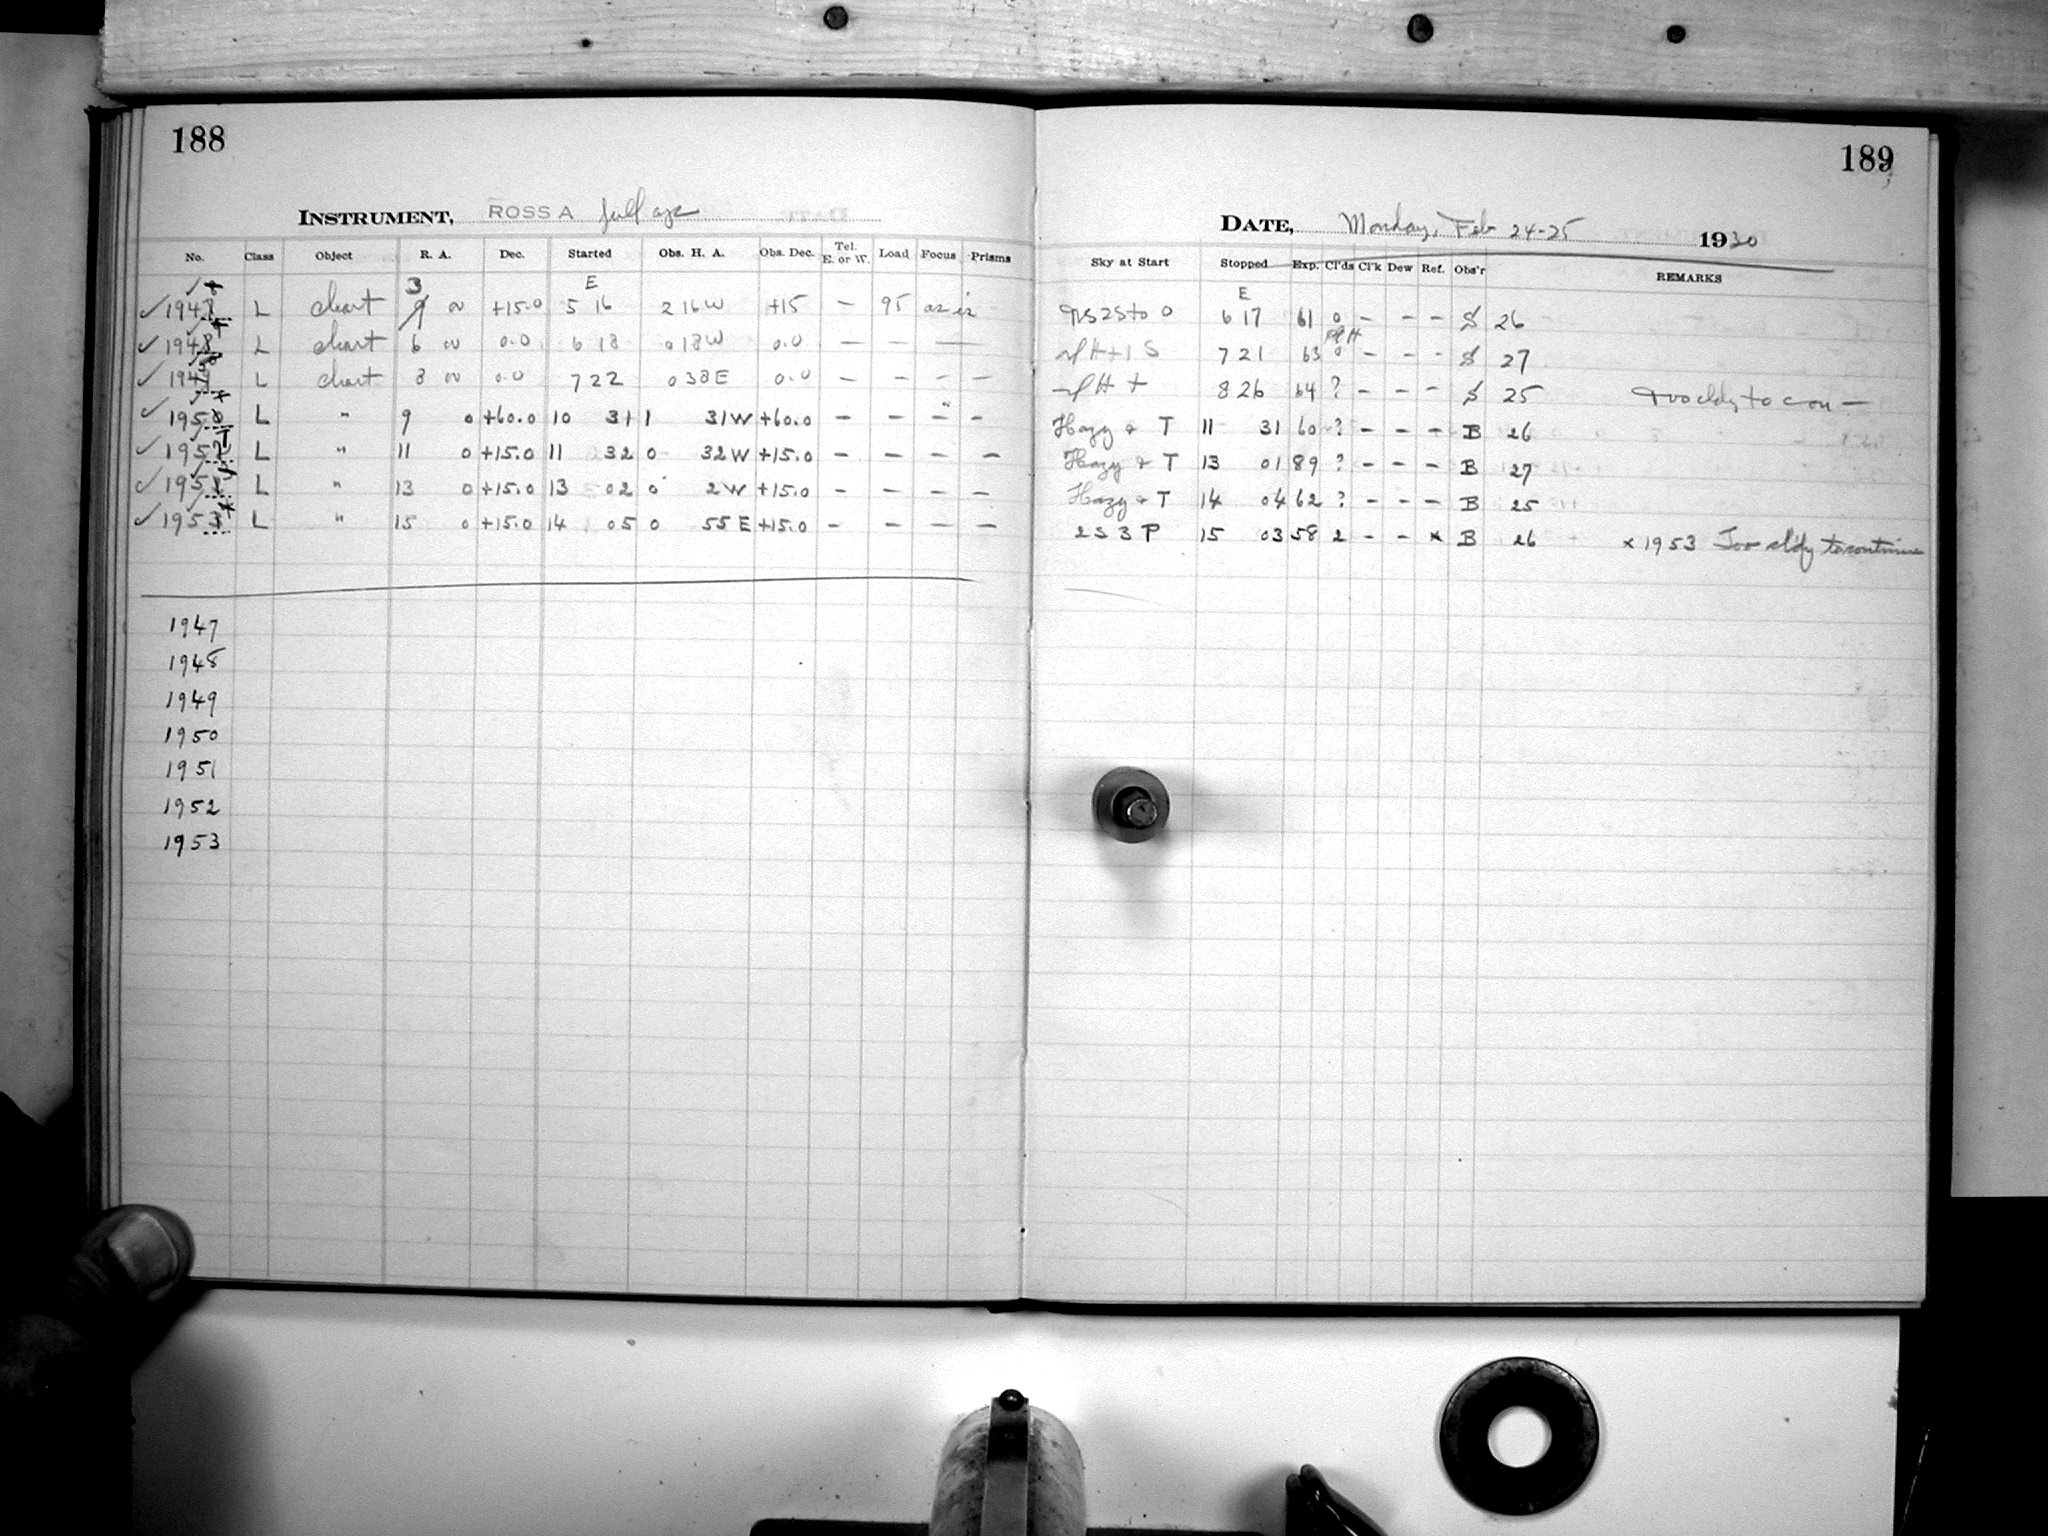 188
INSTRUMENT, ROSS A full ap
No. Class Object R. A. Dec. Started Obs. H. A. Obs. Dec. Tel. E. or W. Load Focus Prisms
3 E
1947 L chart 9 00 +15.0 5 16 2 16 W +15 — 95 as is
1948 L chart 6 00 0.0 6 18 0 18 W 0.0 — — —
1949 L chart 8 00 0.0 7 22 0 38 E 0.0 — — — —
1950 L " 9 0 +60.0 10 31 1 31 W +60.0 — — — —
195 L " 11 0 +15.0 11 32 0 32 W +15.0 — — — —
195 L " 13 0 +15.0 13 02 0 2 W +15.0 — — — —
1953 L " 15 0 +15.0 14 05 0 55 E +15.0 — — — —
1947
1948
1949
1950
1951
1952
1953
189
DATE, Monday, Feb 24-25 1930
Sky at Start Stopped Exp. Cl'ds Cl'k Dew Ref. Obs'r REMARKS
E
2S to 0 6 17 61 0 - - - S 26
H+1 S 7 21 63 0 - - - S 27
H + 8 26 64 ? - - - S 25 too cldy to con —
Hazy & T 11 31 60 ? - - - B 26
Hazy & T 13 01 89 ? - - - B 27
Hazy & T 14 04 62 ? - - - B 25
2 S 3 P 15 03 58 2 - - x B 26 x 1953 Too cldy to continue